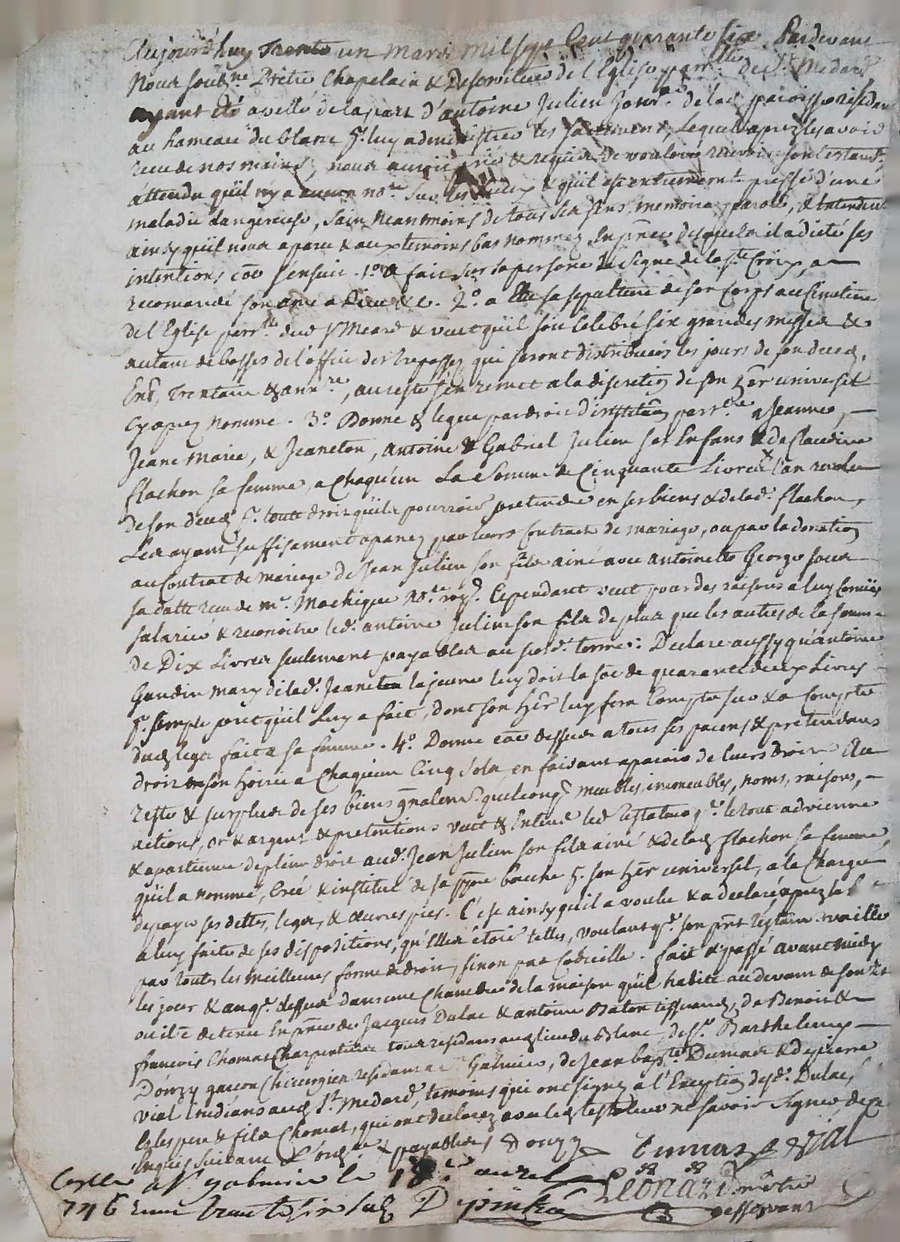 Aujourd'huy Trente un mars mil sept Cent quarante six Pardevant
Nous souz.ne Prêtre Chapelain & Desserviteur de l'Eglise parr.lle de St Medard
ayant été apellé de la part d'antoine Julien Jour.r de lad. paroisse résidant
au hameau du blanc p.r luy administrer les sacrements, Lequel aprez les avoir
receu de nos mains, nous auroit prié & requis de vouloir recevoir son testam.t
attendu quil ny a aucun no.re sur les lieux & quil est entierement pressé d'une
maladie dangereuse, sain neantmoins de tous ses sens, memoire, parole, & entendem.t
ainsy quil nous a paru & aux temoins bas nommez En p.nce desquels il a dicté ses
intentions coe s'ensuit. 1.o a fait sur sa persone le signe de la S.te Croix, a
recomandé son ame a Dieu &c. 2.o a élu sa sepulture de son Corps au Cimetiere
de l'Eglise parr.lle dud St Medard & veut quil soit Celebré six grandes messes &
autant de basses de l'office des trepassez qui seront distribuées les jours de son decez,
Ent.t, Trentaine & ann.re, au reste s'en remet a la discretion de son her. universel
cy aprez nommé. 3.o Donne & legue par droit d'institution parr.lle a Jeanne,
Jeane Marie, & Jeaneton, Antoine & Gabriel Julien ses Enfans & de Claudine
flachon sa femme, a Chaqu'un La Somme de Cinquante Livres l'an revolu
de son decez p.r tout droit quils pourroit pretendre en ses biens & de lad. flachon,
Les ayant suffisament apanez par leurs Contrats de mariage, ou par la donation
au Contrat de mariage de Jean Julien son fils ainé avec Antoinette George sous
sa datte receu de m.e Machique no.re roy.l. Cependant veut pour des raisons a luy conues
salarié & reconoitre led. antoine Julien son fils de plus que les autres de la somme
de Dix Livres seulement payables au susd. terme. Declare aussy qu'antoine
Gaudin mary de lad. Jeaneton la jeune luy doit la soe de quarante deux Livres
p.r simple prest quil Luy a fait, dont son her luy fera Compte sur & a Compte
dud legs fait a sa femme. 4.o Donne coe dessus a tous ses parens & pretendans
droit en son hoirie a Chaqu'un Cinq sols, en faisant aparoir de leurs droits Au
reste & surplus de ses biens g.nalem.t quelconq.s meubles, immeubles, noms, raisons,
actions, or & argent & pretentions veut & entend led. testateur q.e le tout advienne
& apartienne de plein droit aud. Jean Julien son fils ainé & de lad. flachon sa femme
quil a nommé, Créé & institué de sa p.pre bouche p.r son her universel, a la Charge
de payer ses dettes, legs, & œuvres pies. C'est ainsy quil a voulu & a declaré aprez la l
a luy faite de ses dispositions, qu'elles étoit telles, voulant q.e son p.nt testam. vaille
par toutes les meilleures forme de droit, sinon par Codicille. fait & passé avant midy
les jour & an q.e dessus dans une Chambre de la maison qu'il habite au devant de son lit
ou il e detenu En p.nce de Jacques Dulac & antoine Baton tisserands, de Benoit &
françois Chomat Charpentiers tous residans aud lieu du Blanc, de S.r Barthelemy
Donzy garcon Chirurgien resident a S.t Galmier, de Jean bap.te Dumas & de pierre
vial Etudians aud. St Medard, temoins qui ont signez a l'Exception desd. Dulac,
& les pere & fils Chomat, qui ont declarez avec led. testateur ne savoir signer, de Ce
Enquis suivant L'ord.ce payables Donzy Dumas vial
Leonard prêtre
desservant
Controllé a St galmier le 18.e avril
1746 Reçu trente six sols Depinhac